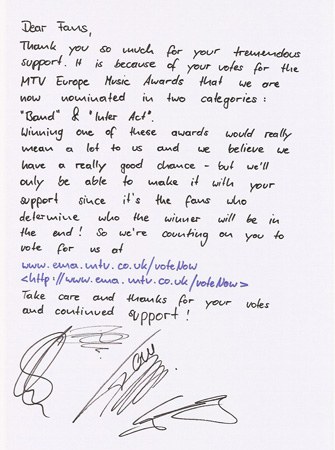 Dear Fans,
Thank you so much for your tremendous
support. It is because of your votes for the
MTV Europe Music Awards that we are
now nominated in two categories:
"Band" & "Inter Act".
Winning one of these awards would really
mean a lot to us and we believe we
have a really good chance - but we'll
only be able to make it with your
support since it's the fans who
determine who the winner will be in
the end! So we're counting on you to
vote for us at
www.ema.mtv.co.uk/voteNow
<http://www.ema.mtv.co.uk/voteNow>
Take care and thanks for your votes
and continued support!